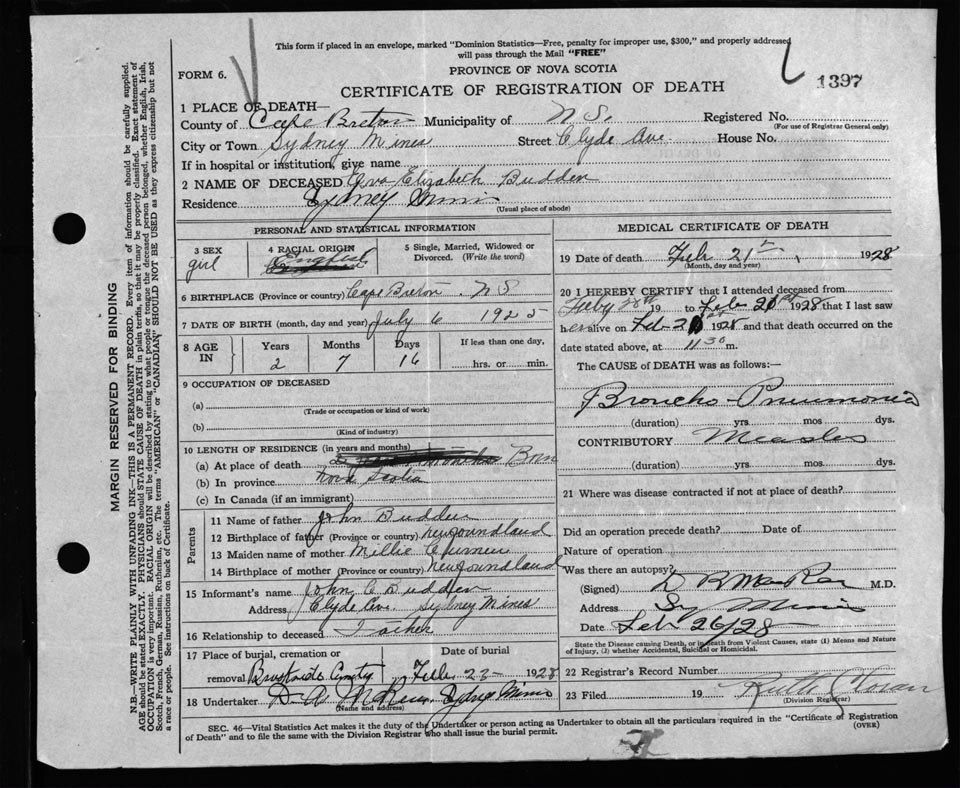 This form if placed in an envelope, marked "Dominion Statistics—Free, penalty for improper use, $300," and properly addressed
will pass through the Mail "FREE"
FORM 6.
PROVINCE OF NOVA SCOTIA
1397
CERTIFICATE OF REGISTRATION OF DEATH
1 PLACE OF DEATH—
County of Cape Breton Municipality of N S. Registered No.
(For use of Registrar General only)
City or Town Sydney Mines Street Clyde Ave House No.
If in hospital or institution, give name
2 NAME OF DECEASED Eva Elizabeth Budden
Residence Sydney Mines
(Usual place of abode)
PERSONAL AND STATISTICAL INFORMATION
3 SEX
girl
4 RACIAL ORIGIN
English
5 Single, Married, Widowed or Divorced. (Write the word)
6 BIRTHPLACE (Province or country) Cape Breton. N S
7 DATE OF BIRTH (month, day and year) July 6 1925
8 AGE IN
Years Months Days If less than one day,
2 7 16 hrs. or min.
9 OCCUPATION OF DECEASED
(a)
(Trade or occupation or kind of work)
(b)
(Kind of industry)
10 LENGTH OF RESIDENCE (in years and months)
(a) At place of death Born
(b) In province Nova Scotia
(c) In Canada (if an immigrant)
Parents
11 Name of father John Budden
12 Birthplace of father (Province or country) Newfoundland
13 Maiden name of mother Millie
14 Birthplace of mother (Province or country) Newfoundland
15 Informant's name John C Budden
Address Clyde Ave. Sydney Mines
16 Relationship to deceased Father
17 Place of burial, cremation or removal Date of burial
Feb 23 1928
18 Undertaker D. A. Sydney Mines
(Name and address)
MEDICAL CERTIFICATE OF DEATH
19 Date of death Feb 21st 1928
(Month, day and year)
20 I HEREBY CERTIFY that I attended deceased from
19 to Feb 21st 1928 that I last saw
her alive on Feb 21st 1928 and that death occurred on the
date stated above, at 11 30 m.
The CAUSE of DEATH was as follows:—
Broncho-Pneumonia
(duration) yrs. mos dys.
CONTRIBUTORY Measles
(duration) yrs. mos. dys.
21 Where was disease contracted if not at place of death?
Did an operation precede death? Date of
Nature of operation
Was there an autopsy?
(Signed) D R MacRae M.D.
Address Sy Mines
Date Feb 26/28
State the Disease causing Death, or in death from Violent Causes, state (1) Means and Nature
of Injury, (2) whether Accidental, Suicidal or Homicidal.
22 Registrar's Record Number
23 Filed 19 Ruth
(Division Registrar)
SEC. 46—Vital Statistics Act makes it the duty of the Undertaker or person acting as Undertaker to obtain all the particulars required in the "Certificate of Registration
of Death" and to file the same with the Division Registrar who shall issue the burial permit.
(OVER)
MARGIN RESERVED FOR BINDING
N.B.—WRITE PLAINLY WITH UNFADING INK—THIS IS A PERMANENT RECORD. Every item of information should be carefully supplied.
AGE should be stated EXACTLY. PHYSICIANS should STATE CAUSE OF DEATH in plain terms, so that it may be properly classified. Exact statement of
OCCUPATION is very important. RACIAL ORIGIN will be described by stating to what people or tongue the deceased person belonged, whether English, Irish,
Scotch, French, German, Russian, Ruthenian, etc. The terms "AMERICAN" or "CANADIAN" SHOULD NOT BE USED as they express citizenship but not
a race or people. See instructions on back of Certificate.